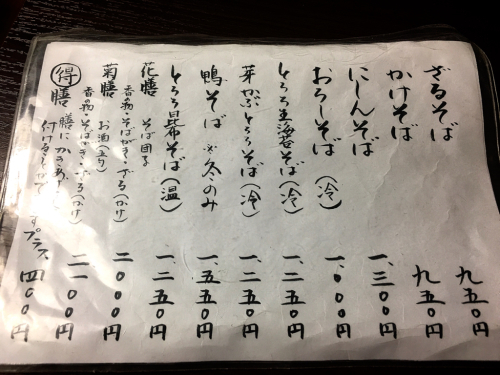 ざるそば 九五〇円
かけそば 九五〇円
にしんそば 一、三〇〇円
おろしそば(冷) 一、〇〇〇円
とろろ生海苔そば(冷) 一、二五〇円
芽かぶとろろそば(冷) 一、二五〇円
鴨そば ※冬のみ 一、五五〇円
とろろ昆布そば(温) 一、二五〇円
花膳 そば団子
香の物・そばがき・ざる(かけ) 二〇〇〇円
菊膳 お酒(五勺)
香の物・そばがき・ざる(かけ) 二一〇〇円
得膳 膳にかきあげ
付ける プラス 四〇〇円